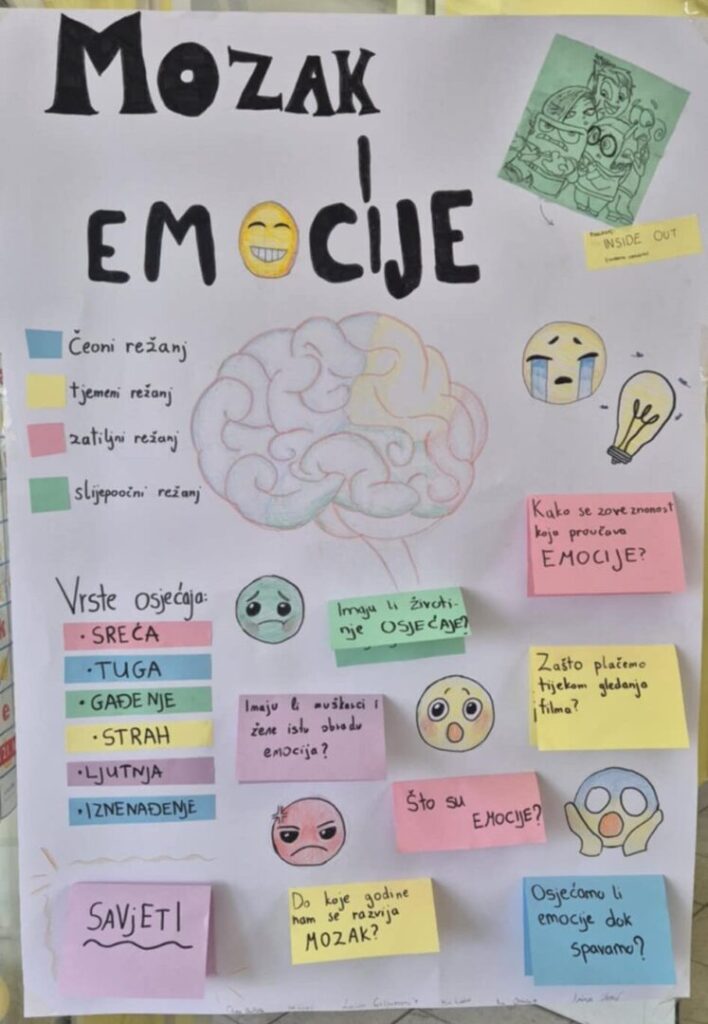 MOZAK
I
EMOCIJE
INSIDE OUT
Čeoni režanj
tjemeni režanj
zatiljni režanj
slijepoočni režanj
Kako se zove znanost
koja proučava
EMOCIJE?
Vrste osjećaja:
• SREĆA
• TUGA
• GAĐENJE
• STRAH
• LJUTNJA
• IZNENAĐENJE
Imaju li životi-
nje OSJEĆAJE?
Zašto plačemo
tijekom gledanja
filma?
Imaju li muškarci i
žene istu obradu
emocija?
Što su
EMOCIJE?
SAVJETI
Do koje godine
nam se razvija
MOZAK?
Osjećamo li
emocije dok
spavamo?